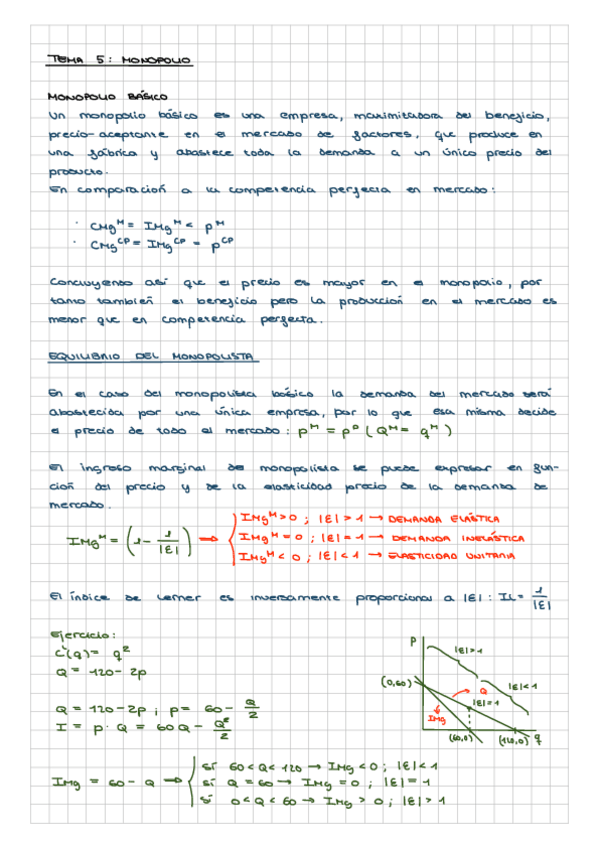 TEMA 5: MONOPOLIO
MONOPOLIO BÁSICO
Un monopolio básico es una empresa, maximizadora del beneficio,
precio-aceptante en el mercado de factores, que produce en
una fábrica y abastece toda la demanda a un único precio del
producto.
En comparación a la competencia perfecta en mercado:
· CMg^M = IMg^M < P^M
· CMg^CP = IMg^CP = P^CP
Concluyendo así que el precio es mayor en el monopolio, por
tanto también el beneficio pero la producción en el mercado es
menor que en competencia perfecta.
EQUILIBRIO DEL MONOPOLISTA
En el caso del monopolista básico la demanda del mercado será
abastecida por una única empresa, por lo que esa misma decide
el precio de todo el mercado: P^M = P^D (Q^M = q^M)
El ingreso marginal de monopolista se puede expresar en fun-
ción del precio y de la elasticidad precio de la demanda de
mercado.
IMg^M = (1 - 1/|E|) ⇒ { IMg^M > 0 ; |E| > 1 → DEMANDA ELÁSTICA
IMg^M = 0 ; |E| = 1 → DEMANDA INELÁSTICA
IMg^M < 0 ; |E| < 1 → ELASTICIDAD UNITARIA
El índice de Lerner es inversamente proporcional a |E| : IL = 1/|E|
Ejercicio:
C(q) = q²
Q = 120 - 2p
Q = 120 - 2p ; p = 60 - Q/2
I = p · Q = 60Q - Q²/2
IMg = 60 - Q ⇒ { Si 60 < Q < 120 → IMg < 0 ; |E| < 1
Si Q = 60 → IMg = 0 ; |E| = 1
Si 0 < Q < 60 → IMg > 0 ; |E| > 1
P
|E| > 1
(0,60)
Q
|E| < 1
|E| = 1
IMg
(60,0)
(120,0)
q